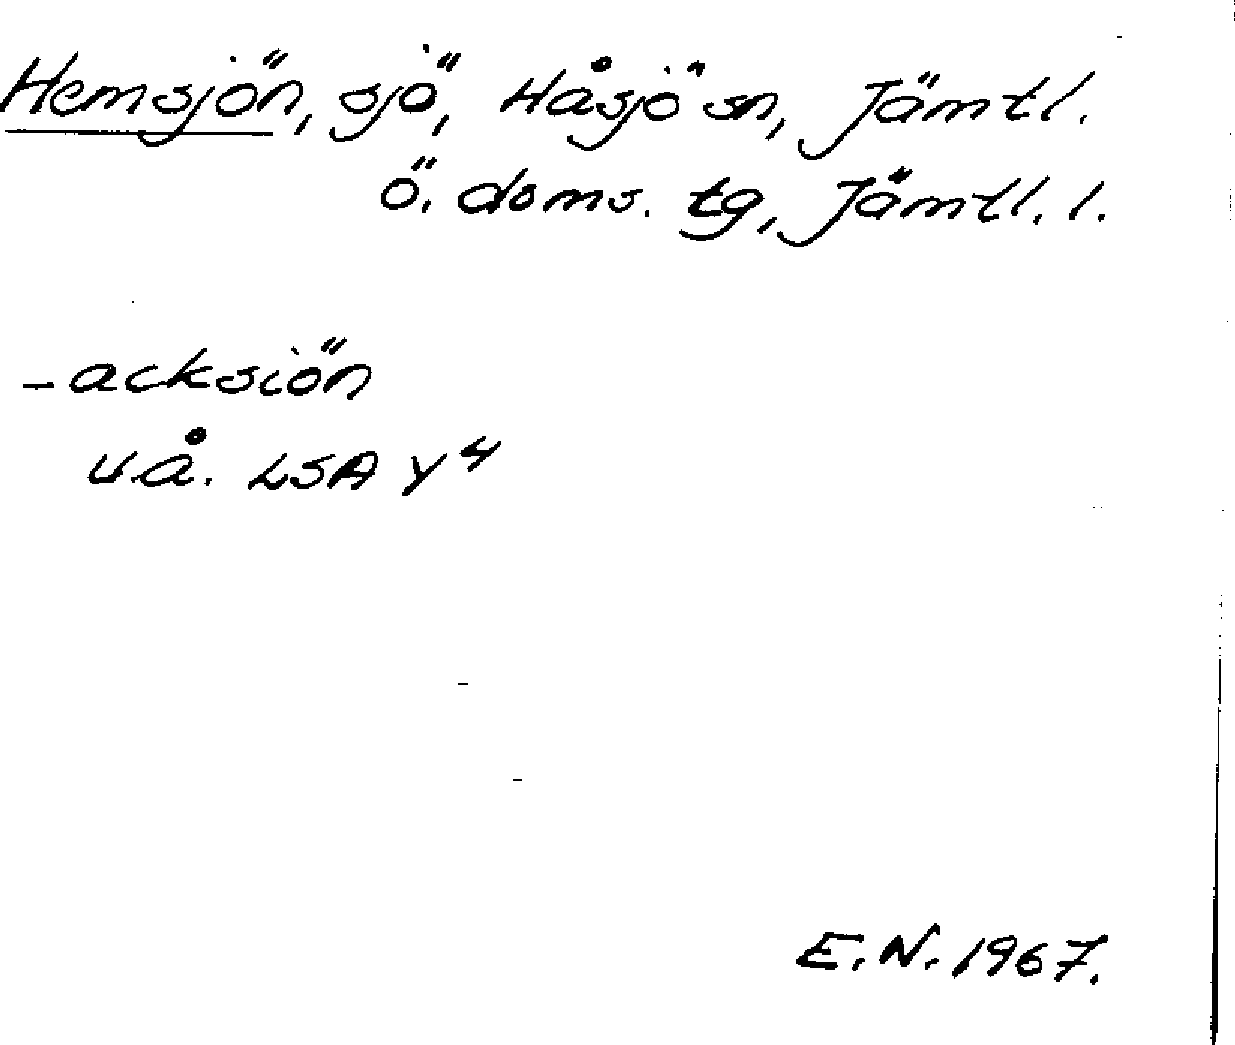 Hemsjön, sjö, Håsjö sn, Jämtl.
Ö. doms. tg, Jämtl. l.
-acksiön
u.å. LSA Y 4
E.N. 1967.